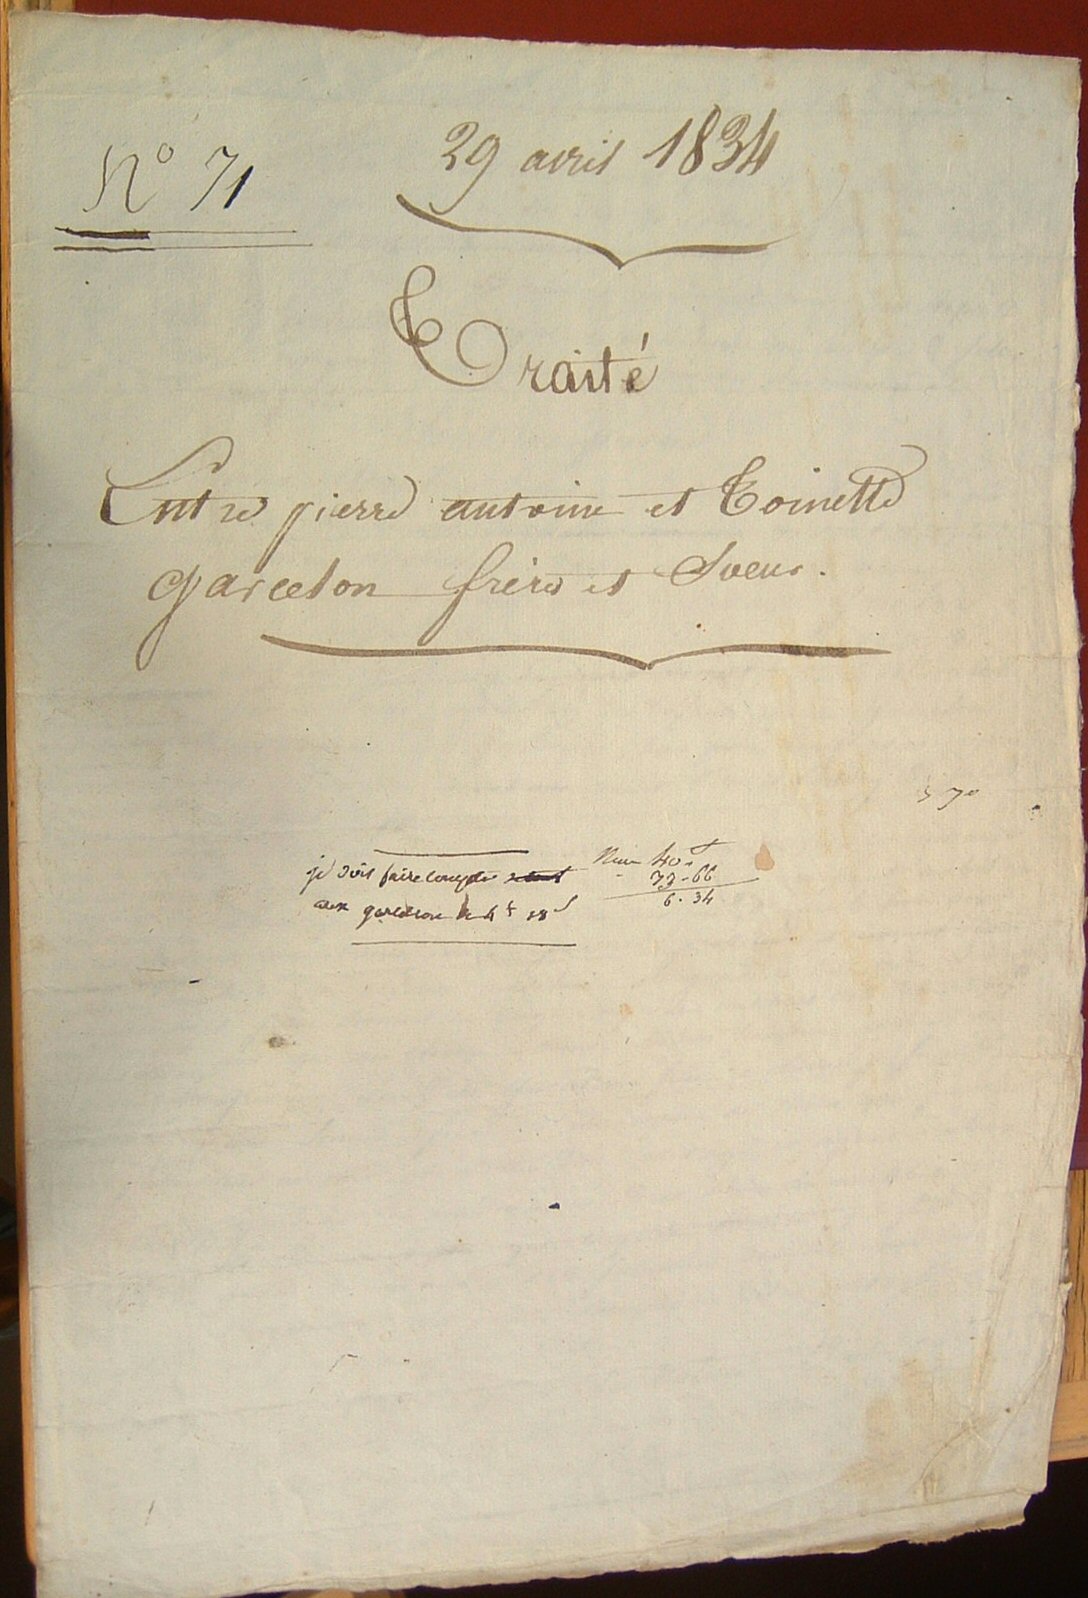 N° 71
29 avril 1834
Traité
Entre pierre antoine et Toinette
Garceton frère et Soeur.
je dois faire compte
aux garceton
40
33-66
6-34